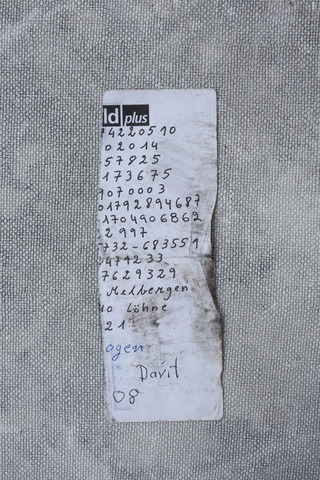 ld plus
74220510
02014
57825
173675
907000 3
01792894687
1704906862
2997
5732-683551
3474233
7629329
Melbergen
10 Löhne
21
ogen
Davit
08